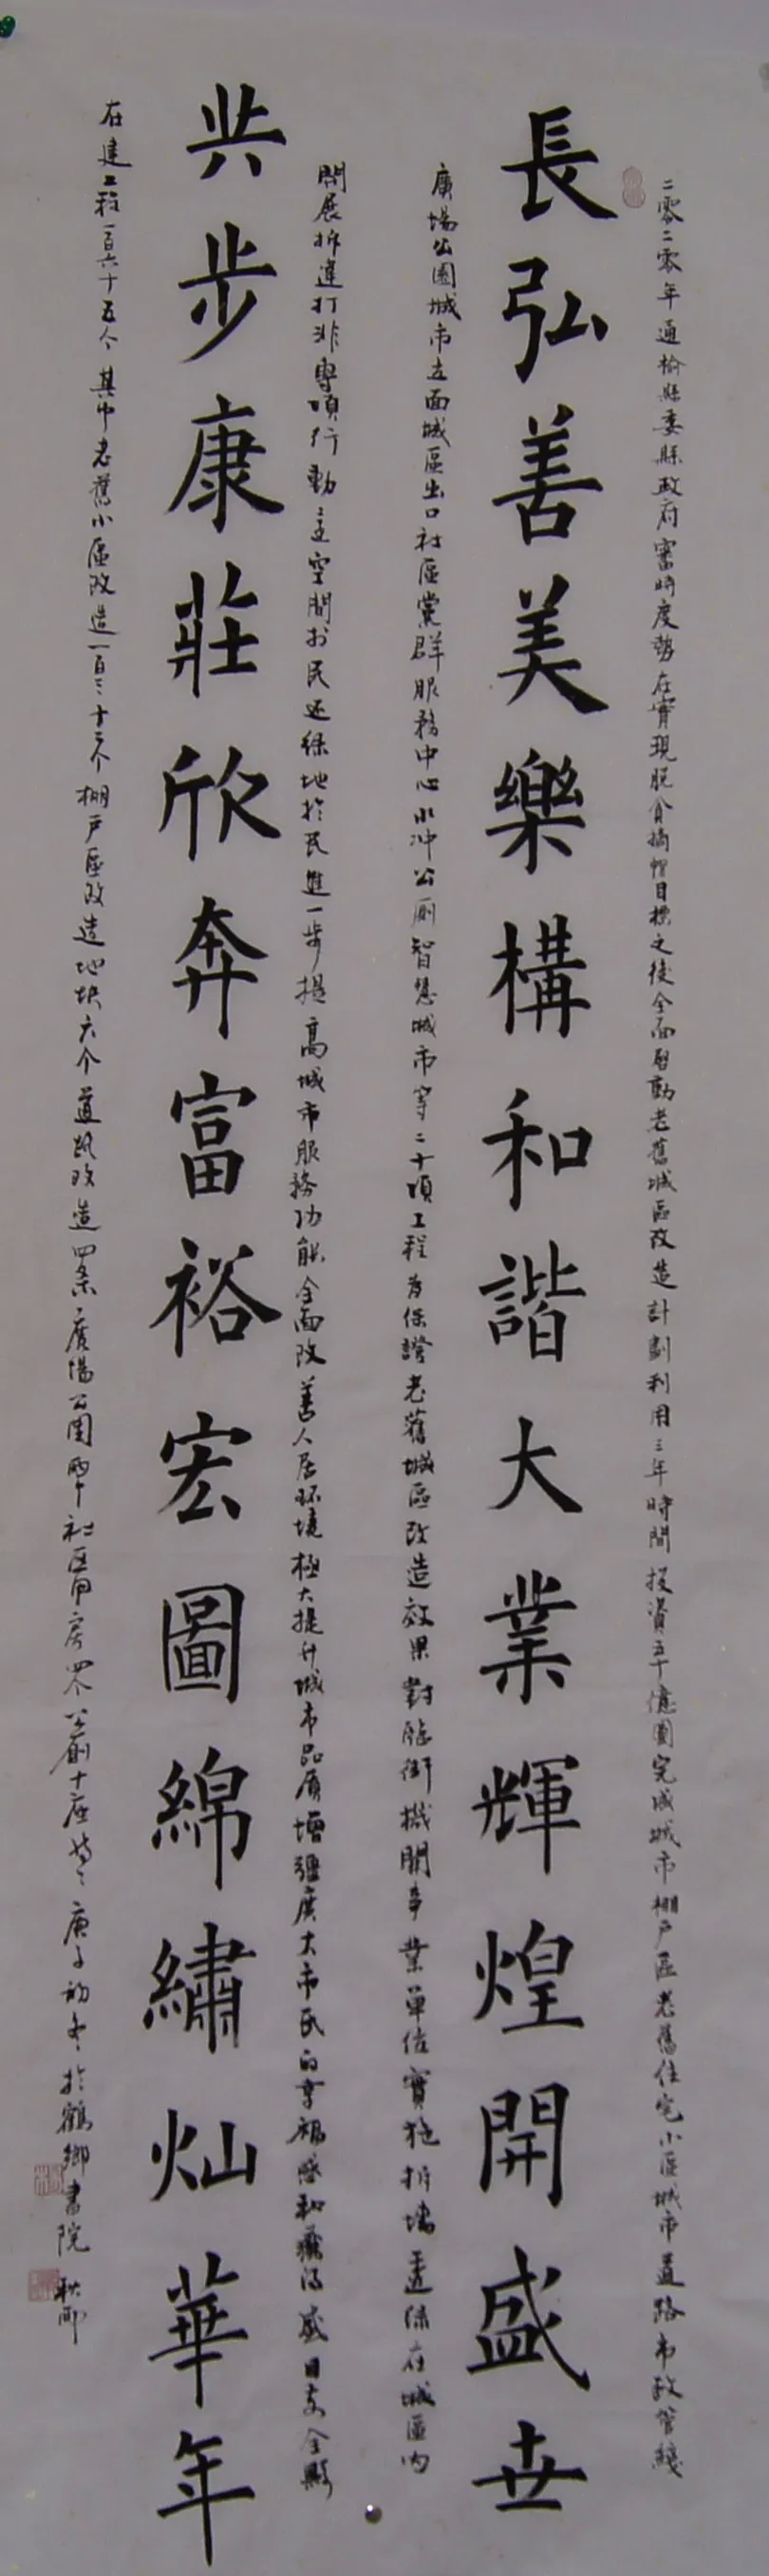 二零二零年通榆縣委縣政府審時度勢在實現脫貧摘帽目標之後全面啟動老舊城區改造計劃利用三年時間投資五十億圓完成城市棚戶區老舊住宅小區城市道路市政管綫
長弘善美樂構和諧大業輝煌開盛世
廣場公園城市立面城區出口社區黨群服務中心水沖公厠智慧城市等二十項工程為保證老舊城區改造效果對臨街機關事業單位實施拆墻透綠在城區内
開展拆違打非專項行動還空間於民還綠地於民進一步提高城市服務功能全面改善人居环境極大提升城市品質增强廣大市民的幸福感和獲得感目前全縣
共步康莊欣奔富裕宏圖綿繡灿華年
在建工程一百六十五个其中老舊小區改造一百三十三个棚戶區改造地块六个道路改造四条廣場公園四个社區用房四个公厠十座等等庚子初冬於鶴鄉書院